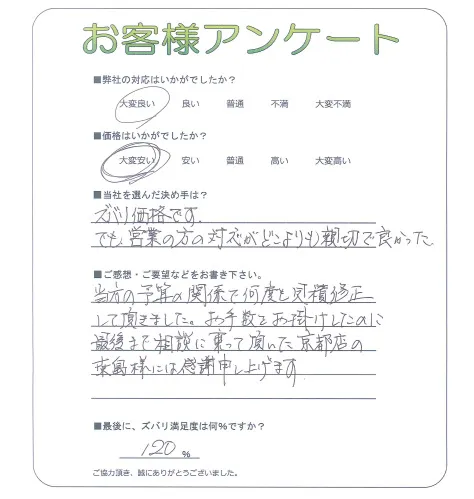 お客様アンケート
■弊社の対応はいかがでしたか？
大変良い 良い 普通 不満 大変不満
■価格はいかがでしたか？
大変安い 安い 普通 高い 大変高い
■当社を選んだ決め手は？
ズバリ価格です.
でも、営業の方の対応がどこよりも親切で良かった
■ご感想・ご要望などをお書き下さい。
当方の予算の関係で何度も見積修正
して頂きました。お手数をお掛けしたのに
最後まで相談に乗って頂いた京都店の
様には感謝申し上げます.
■最後に、ズバリ満足度は何％ですか？
120 ％
ご協力頂き、誠にありがとうございました。